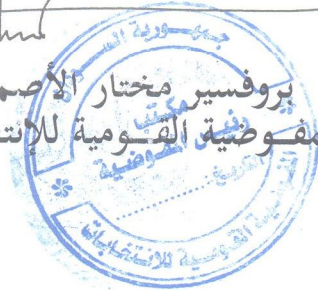 بروفسير مختار الأصم
مفوضية القومية للإنت
جمهورية السو
مكتب
رئيس المفوضية
التاريخ
القومية للإنتخابات